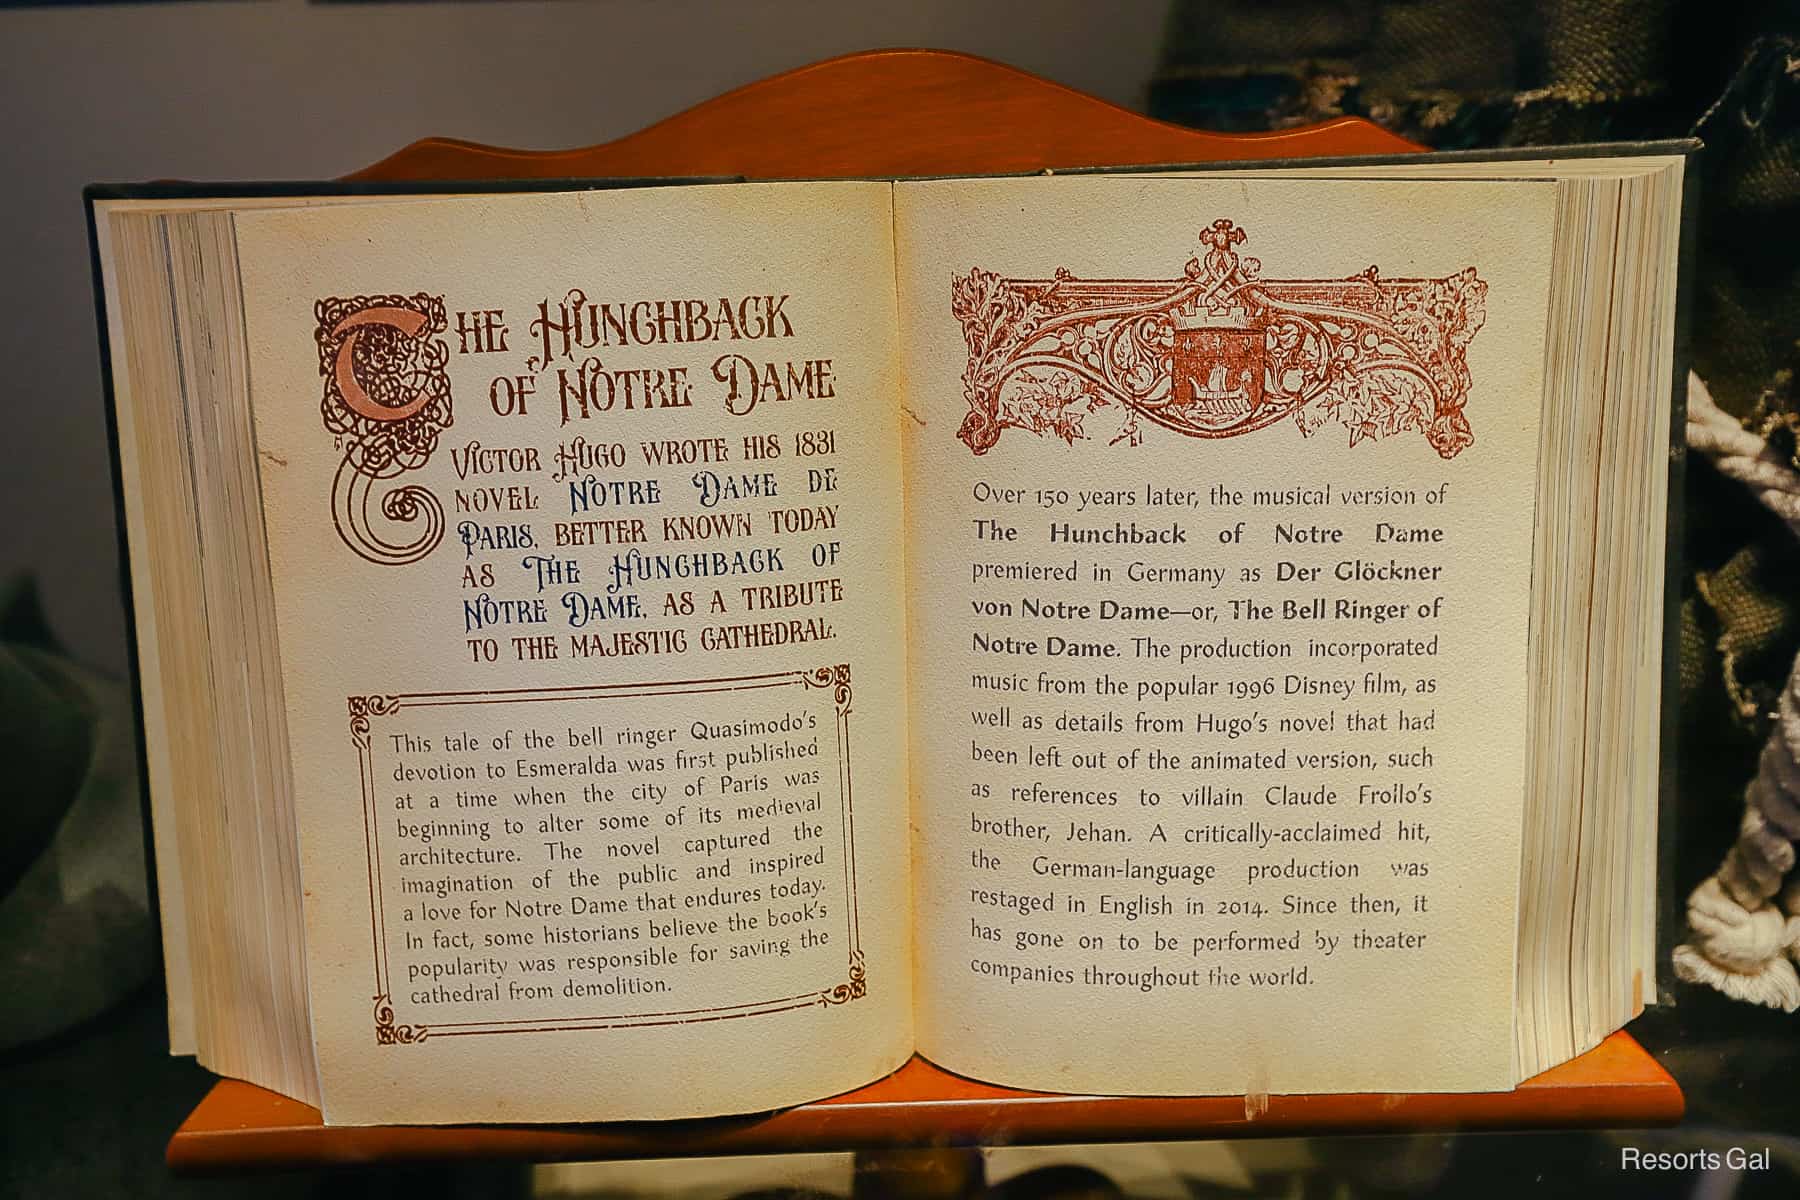 The Hunchback
of Notre Dame
Victor Hugo wrote his 1831
novel Notre Dame de
Paris, better known today
as The Hunchback of
Notre Dame, as a tribute
to the majestic cathedral.
This tale of the bell ringer Quasimodo's
devotion to Esmeralda was first published
at a time when the city of Paris was
beginning to alter some of its medieval
architecture. The novel captured the
imagination of the public and inspired
a love for Notre Dame that endures today.
In fact, some historians believe the book's
popularity was responsible for saving the
cathedral from demolition.
Over 150 years later, the musical version of
The Hunchback of Notre Dame
premiered in Germany as Der Glöckner
von Notre Dame—or, The Bell Ringer of
Notre Dame. The production incorporated
music from the popular 1996 Disney film, as
well as details from Hugo's novel that had
been left out of the animated version, such
as references to villain Claude Frollo's
brother, Jehan. A critically-acclaimed hit,
the German-language production was
restaged in English in 2014. Since then, it
has gone on to be performed by theater
companies throughout the world.
Resorts Gal